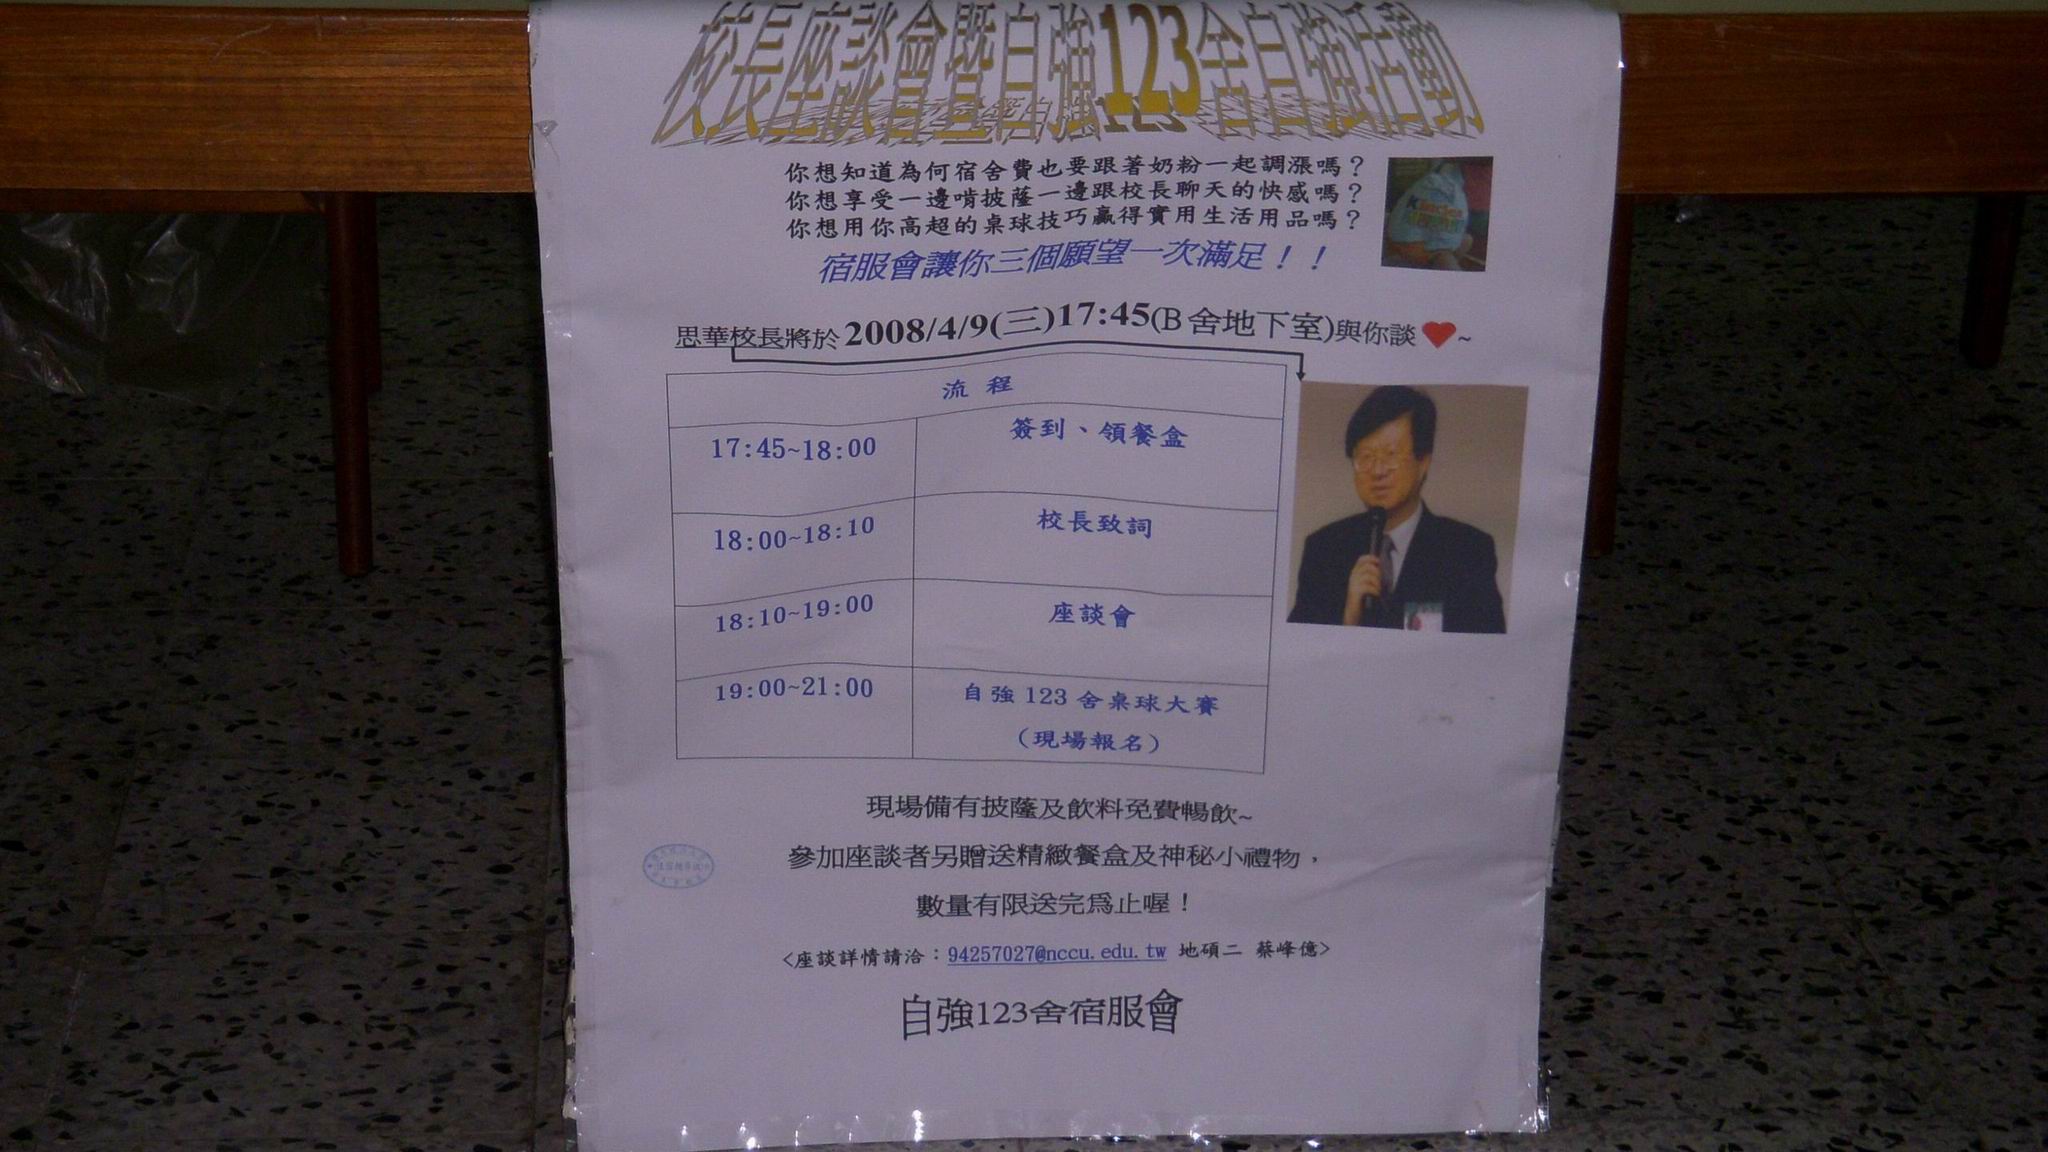 校長座談會暨自強123舍自強活動
你想知道為何宿舍費也要跟著奶粉一起調漲嗎？
你想享受一邊啃披薩一邊跟校長聊天的快感嗎？
你想用你高超的桌球技巧贏得實用生活用品嗎？
宿服會讓你三個願望一次滿足！！
思華校長將於2008/4/9(三)17:45(B舍地下室)與你談❤~
流 程
17:45~18:00 簽到、領餐盒
18:00~18:10 校長致詞
18:10~19:00 座談會
19:00~21:00 自強 123 舍桌球大賽
（現場報名）
現場備有披薩及飲料免費暢飲~
參加座談者另贈送精緻餐盒及神秘小禮物，
數量有限送完為止喔！
<座談詳情請洽：94257027@nccu.edu.tw 地碩二 蔡峰億>
自強123舍宿服會